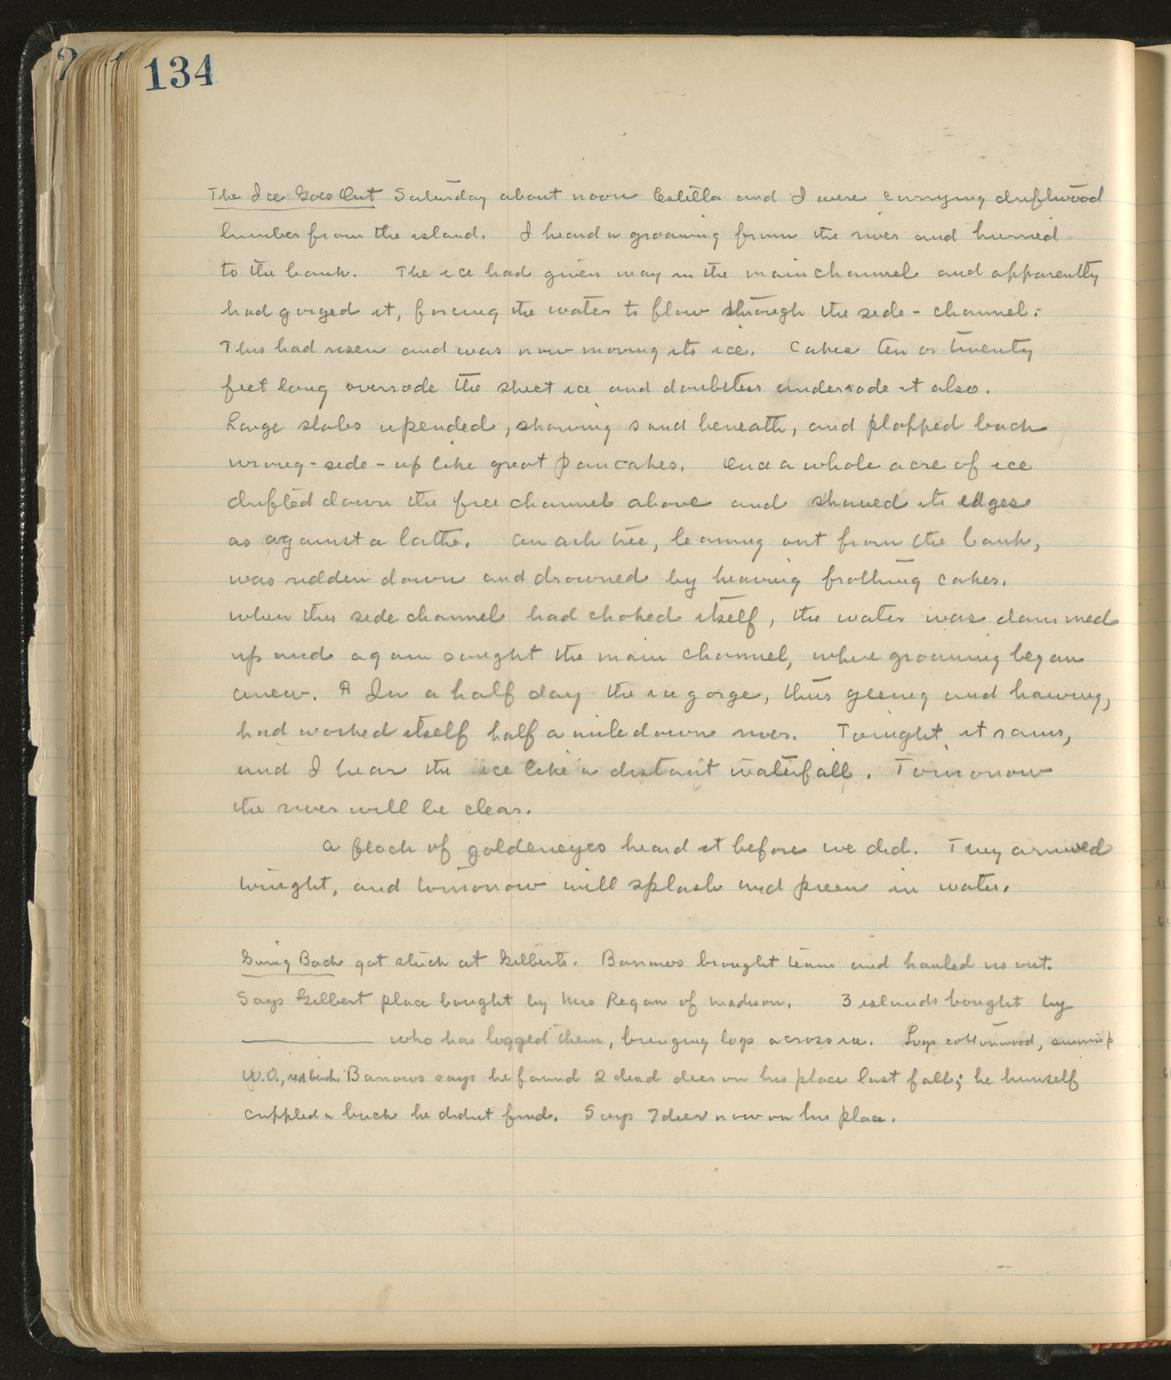 134
The Ice Goes Out Saturday about noon Estella and I were carrying driftwood
lumber from the island. I heard a groaning from the river and hurried
to the bank. The ice had given way in the main channel and apparently
had gorged it, forcing the water to flow through the side-channel.
This had risen and was now moving its ice. Cakes ten or twenty
feet long overrode the sheet ice and doubtless underrode it also.
Large slabs upended, showing sand beneath, and plopped back
wrong-side-up like great pancakes. Once a whole acre of ice
drifted down the free channel above and shaved its edges
as against a lathe. An ash tree, leaning out from the bank,
was ridden down and drowned by heaving frothing cakes.
When this side channel had choked itself, the water was dammed
up and again sought the main channel, where groaning began
anew. ¶ In a half day the ice gorge, thus geeing and hawing,
had worked itself half a mile down river. Tonight it rains,
and I hear the ice like a distant waterfall. Tomorrow
the river will be clear.
A flock of goldeneyes heard it before we did. They arrived
tonight, and tomorrow will splash and preen in water.
Going Back got stuck at Gilberts. Barrows brought team and hauled us out.
Says Gilbert place bought by Mrs Regan of Madison. 3 islands bought by
who has logged them, bringing logs across ice. Logs cottonwood, swamp
W.O., red birch. Barrows says he found 2 dead deer on his place last fall; he himself
crippled a buck he didnt find. Says 7 deer now on his place.